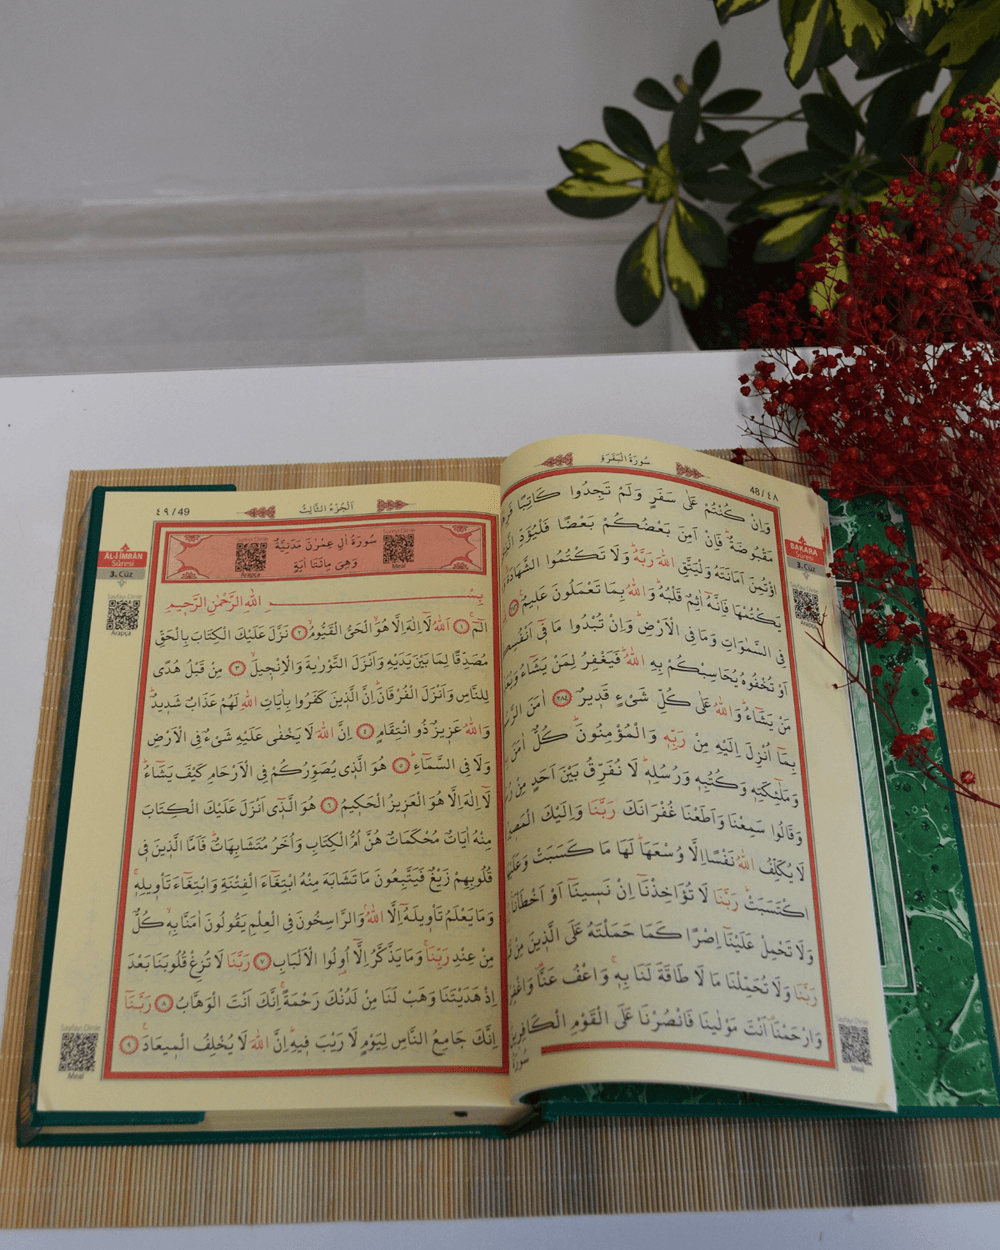 سُورَةُ الْبَقَرَةِ
48 / ٤٨
BAKARA
Sûresi
3. Cüz
Arapça
وَاِنْ كُنْتُمْ عَلٰى سَفَرٍ وَلَمْ تَجِدُوا كَاتِبًا
مَقْبُوضَةٌ فَاِنْ اَمِنَ بَعْضُكُمْ بَعْضًا فَلْيُؤَدِّ
اؤْتُمِنَ اَمَانَتَهُ وَلْيَتَّقِ اللّٰهَ رَبَّهُ وَلَا تَكْتُمُوا الشَّهَادَةَ
يَكْتُمْهَا فَاِنَّهُٓ اٰثِمٌ قَلْبُهُ وَاللّٰهُ بِمَا تَعْمَلُونَ عَلِيمٌ
فِي السَّمٰوَاتِ وَمَا فِي الْاَرْضِ وَاِنْ تُبْدُوا مَا فِٓي
اَوْ تُخْفُوهُ يُحَاسِبْكُمْ بِهِ اللّٰهُ فَيَغْفِرُ لِمَنْ يَشَٓاءُ
مَنْ يَشَٓاءُ وَاللّٰهُ عَلٰى كُلِّ شَيْءٍ قَدِيرٌ ٢٨٤ اٰمَنَ
بِمَٓا اُنْزِلَ اِلَيْهِ مِنْ رَبِّهِ وَالْمُؤْمِنُونَ كُلٌّ اٰمَنَ
وَمَلٰٓئِكَتِهِ وَكُتُبِهِ وَرُسُلِهِ لَا نُفَرِّقُ بَيْنَ اَحَدٍ مِنْ
وَقَالُوا سَمِعْنَا وَاَطَعْنَا غُفْرَانَكَ رَبَّنَا وَاِلَيْكَ
لَا يُكَلِّفُ اللّٰهُ نَفْسًا اِلَّا وُسْعَهَا لَهَا مَا كَسَبَتْ
اكْتَسَبَتْ رَبَّنَا لَا تُؤَاخِذْنَٓا اِنْ نَسِينَٓا اَوْ اَخْطَأْنَا
وَلَا تَحْمِلْ عَلَيْنَٓا اِصْرًا كَمَا حَمَلْتَهُ عَلَى الَّذِينَ مِنْ
رَبَّنَا وَلَا تُحَمِّلْنَا مَا لَا طَاقَةَ لَنَا بِهِ وَاعْفُ عَنَّا
وَارْحَمْنَا اَنْتَ مَوْلٰينَا فَانْصُرْنَا عَلَى الْقَوْمِ الْكَافِرِينَ
سُورَةُ
Sayfayı Dinle
Meal
اَلْجُزْءُ الثَّالِثُ
٤٩ / 49
ÂL-İ İMRÂN
Sûresi
3. Cüz
Sayfayı Dinle
Arapça
سُورَةُ اٰلِ عِمْرٰنَ مَدَنِيَّةٌ
وَهِيَ مِائَتَا اٰيَةٍ
Sûreyi Dinle
Arapça
Sûreyi Dinle
Meal
بِسْمِ اللّٰهِ الرَّحْمٰنِ الرَّحِيمِ
الٓمٓ ١ اَللّٰهُ لَٓا اِلٰهَ اِلَّا هُوَ الْحَيُّ الْقَيُّومُ ٢ نَزَّلَ عَلَيْكَ الْكِتَابَ بِالْحَقِّ
مُصَدِّقًا لِمَا بَيْنَ يَدَيْهِ وَاَنْزَلَ التَّوْرٰيةَ وَالْاِنْجِيلَ ٣ مِنْ قَبْلُ هُدًى
لِلنَّاسِ وَاَنْزَلَ الْفُرْقَانَ اِنَّ الَّذِينَ كَفَرُوا بِاٰيَاتِ اللّٰهِ لَهُمْ عَذَابٌ شَدِيدٌ
وَاللّٰهُ عَزِيزٌ ذُو انْتِقَامٍ ٤ اِنَّ اللّٰهَ لَا يَخْفٰى عَلَيْهِ شَيْءٌ فِي الْاَرْضِ
وَلَا فِي السَّمَٓاءِ ٥ هُوَ الَّذِي يُصَوِّرُكُمْ فِي الْاَرْحَامِ كَيْفَ يَشَٓاءُ
لَٓا اِلٰهَ اِلَّا هُوَ الْعَزِيزُ الْحَكِيمُ ٦ هُوَ الَّذِٓي اَنْزَلَ عَلَيْكَ الْكِتَابَ
مِنْهُ اٰيَاتٌ مُحْكَمَاتٌ هُنَّ اُمُّ الْكِتَابِ وَاُخَرُ مُتَشَابِهَاتٌ فَاَمَّا الَّذِينَ فِي
قُلُوبِهِمْ زَيْغٌ فَيَتَّبِعُونَ مَا تَشَابَهَ مِنْهُ ابْتِغَٓاءَ الْفِتْنَةِ وَابْتِغَٓاءَ تَأْوِيلِهِ
وَمَا يَعْلَمُ تَأْوِيلَهُٓ اِلَّا اللّٰهُ وَالرَّاسِخُونَ فِي الْعِلْمِ يَقُولُونَ اٰمَنَّا بِهِ كُلٌّ
مِنْ عِنْدِ رَبِّنَا وَمَا يَذَّكَّرُ اِلَّٓا اُولُوا الْاَلْبَابِ ٧ رَبَّنَا لَا تُزِغْ قُلُوبَنَا بَعْدَ
اِذْ هَدَيْتَنَا وَهَبْ لَنَا مِنْ لَدُنْكَ رَحْمَةً اِنَّكَ اَنْتَ الْوَهَّابُ ٨ رَبَّنَٓا
اِنَّكَ جَامِعُ النَّاسِ لِيَوْمٍ لَا رَيْبَ فِيهِ اِنَّ اللّٰهَ لَا يُخْلِفُ الْمِيعَادَ ٩
Sayfayı Dinle
Meal